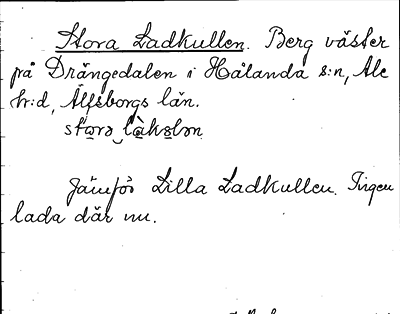 Stora Ladkullen. Berg väster
på Drängedalen i Hålanda s:n, Ale
hr:d, Älfsborgs län.
Jämför Lilla Ladkullen. Ingen
lada där nu.